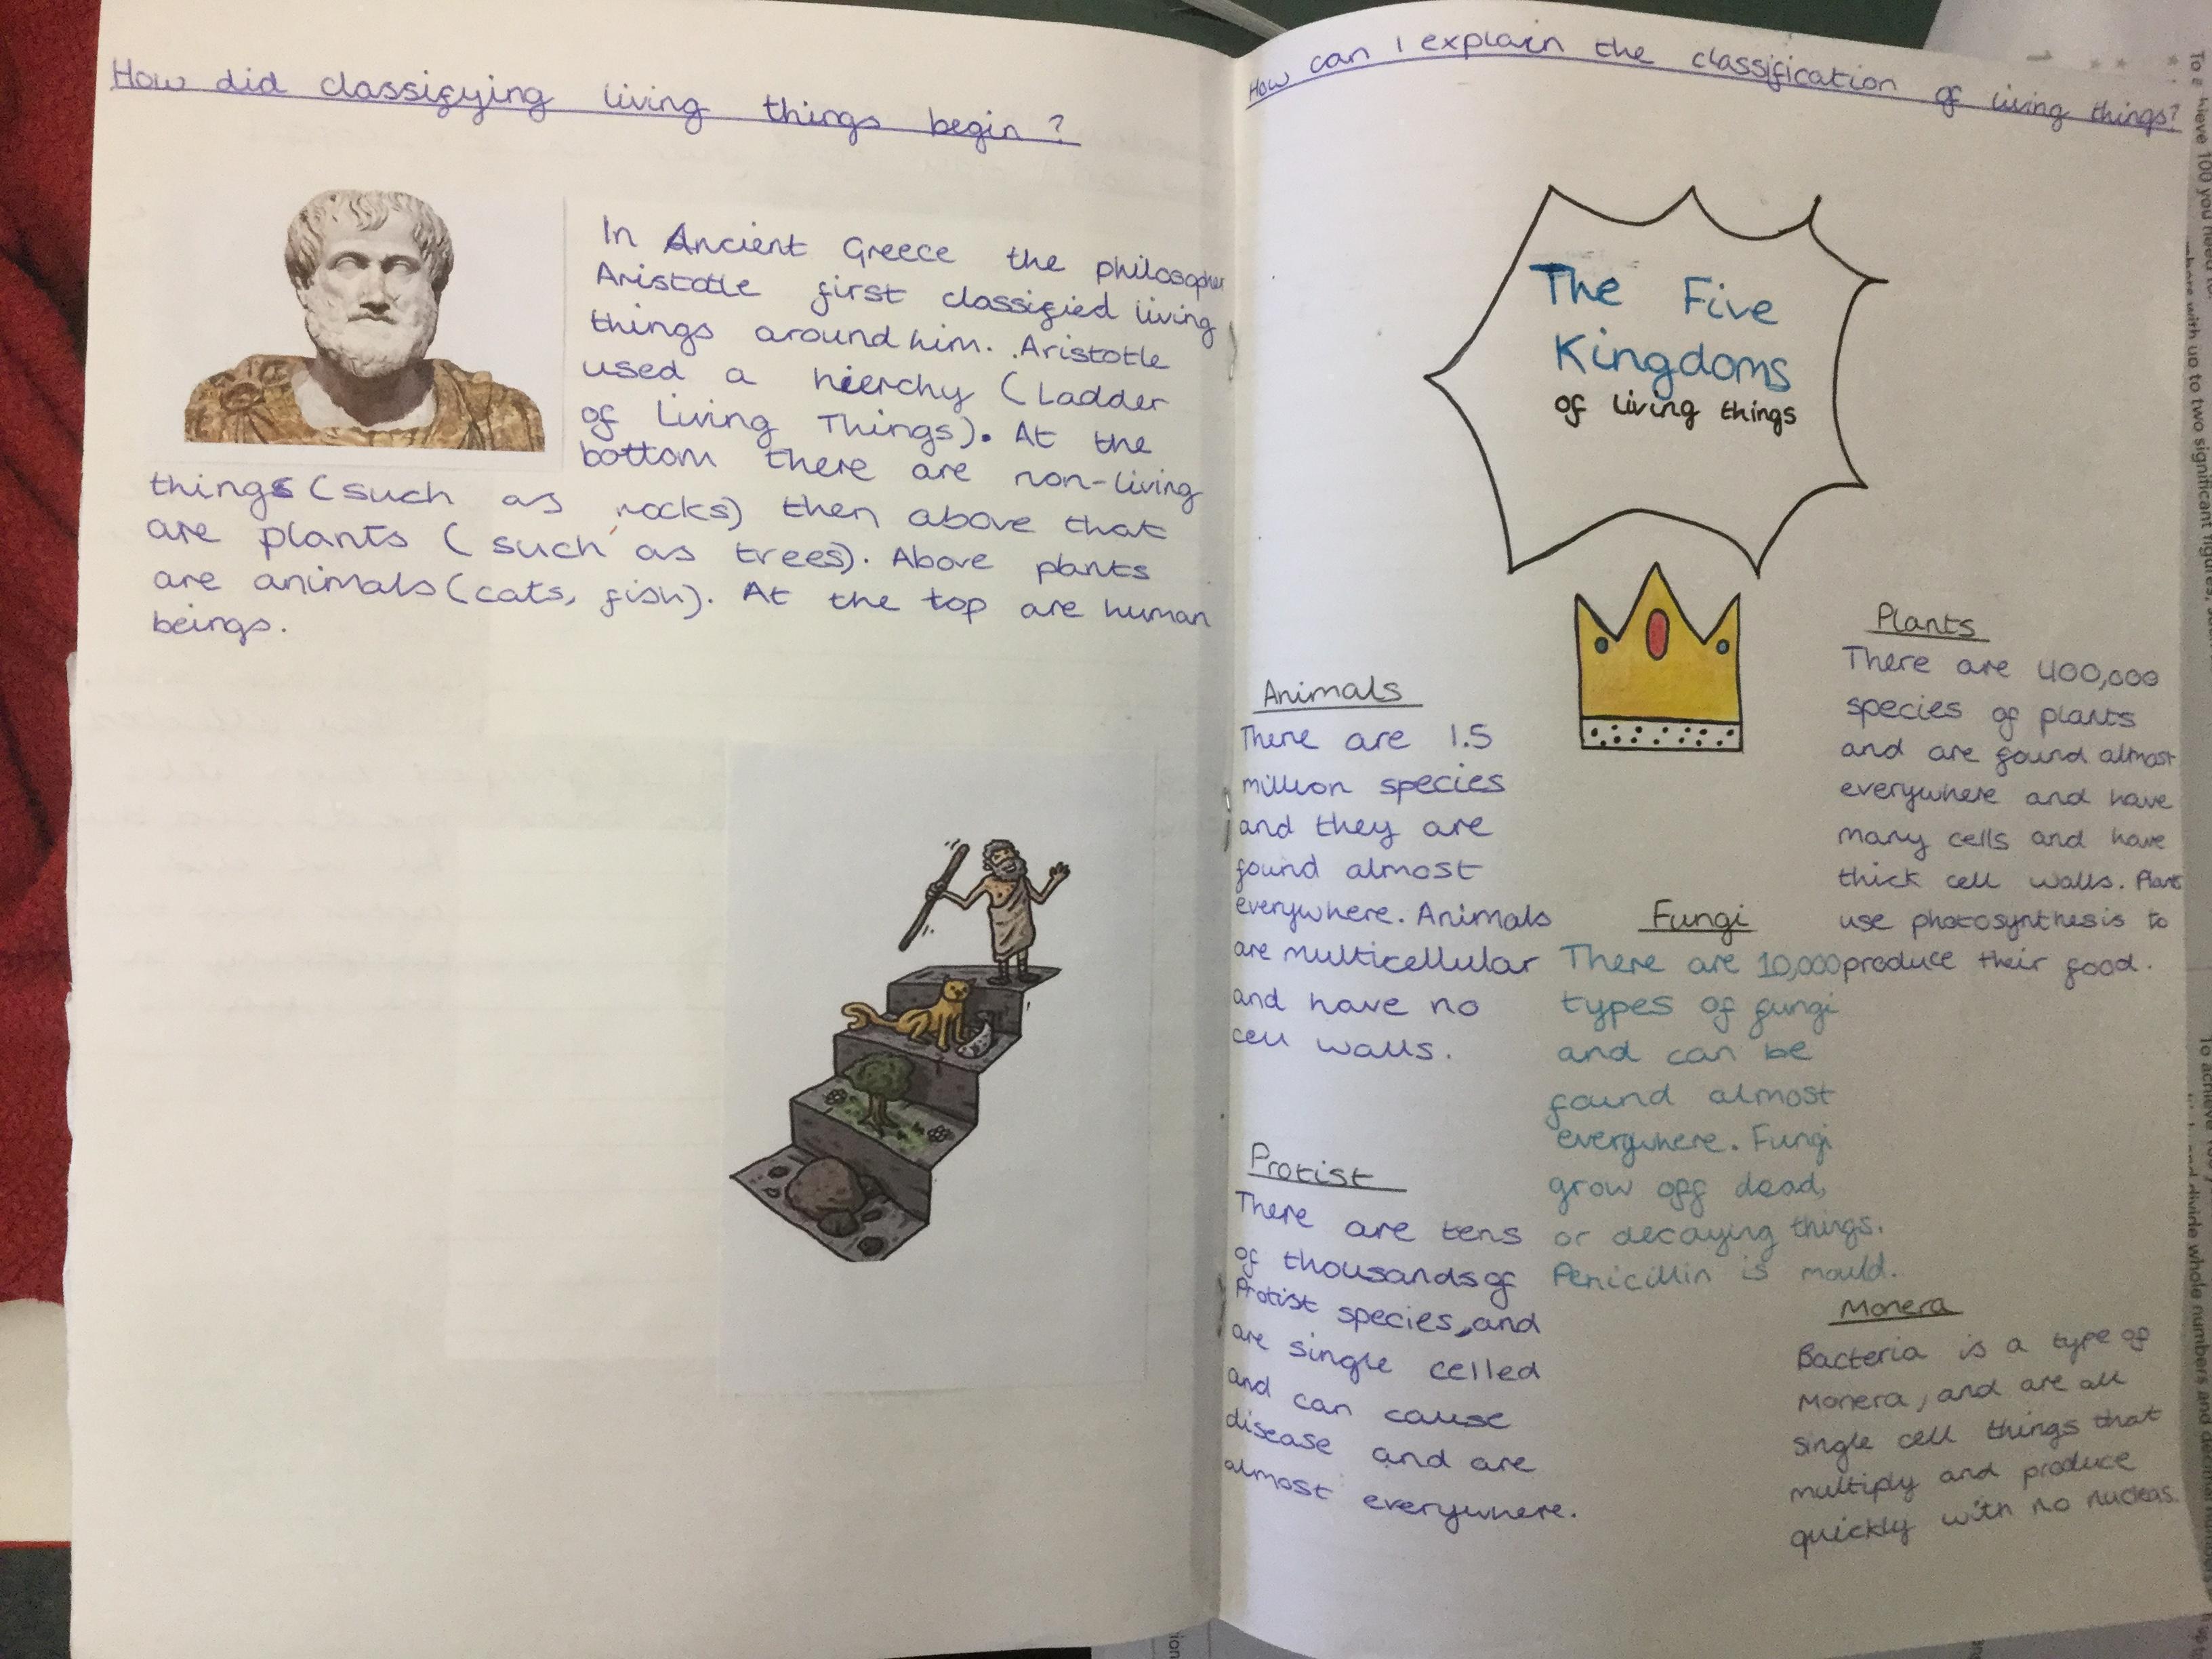 How did classifying living things begin?
In Ancient Greece the philosopher
Aristotle first classified living
things around him. Aristotle
used a hierchy (Ladder
of Living Things). At the
bottom there are non-living
things (such as rocks) then above that
are plants (such as trees). Above plants
are animals (cats, fish). At the top are human
beings.
How can I explain the classification of living things?
The Five
Kingdoms
of living things
Animals
There are 1.5
million species
and they are
found almost
everywhere. Animals
are multicellular
and have no
cell walls.
Plants
There are 400,000
species of plants
and are found almost
everywhere and have
many cells and have
thick cell walls. Plants
use photosynthesis to
produce their food.
Fungi
There are 10,000
types of fungi
and can be
found almost
everywhere. Fungi
grow off dead,
or decaying things.
Penicillin is mould.
Protist
There are tens
of thousands of
Protist species, and
are single celled
and can cause
disease and are
almost everywhere.
Monera
Bacteria is a type of
Monera, and are all
single cell things that
multiply and produce
quickly with no nucleas.
100 you need to
with up to two significant figures,
To achieve
and divide whole numbers and decimal numbers